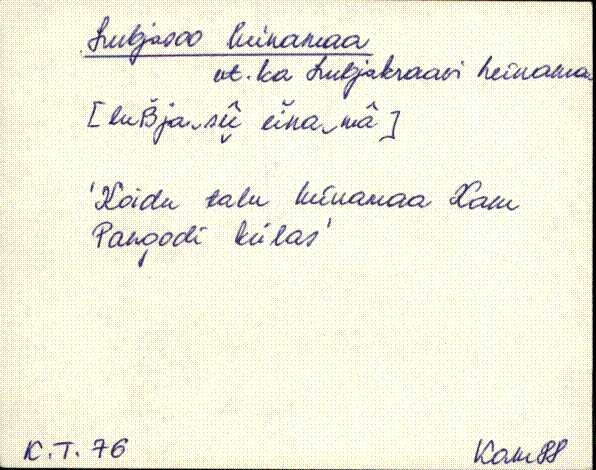 Lubjasoo heinamaa
vt. ka Lubjakraavi heinama
'Koidu talu heinamaa Kam
Pangodi külas'
K.T. 76
Kam 88